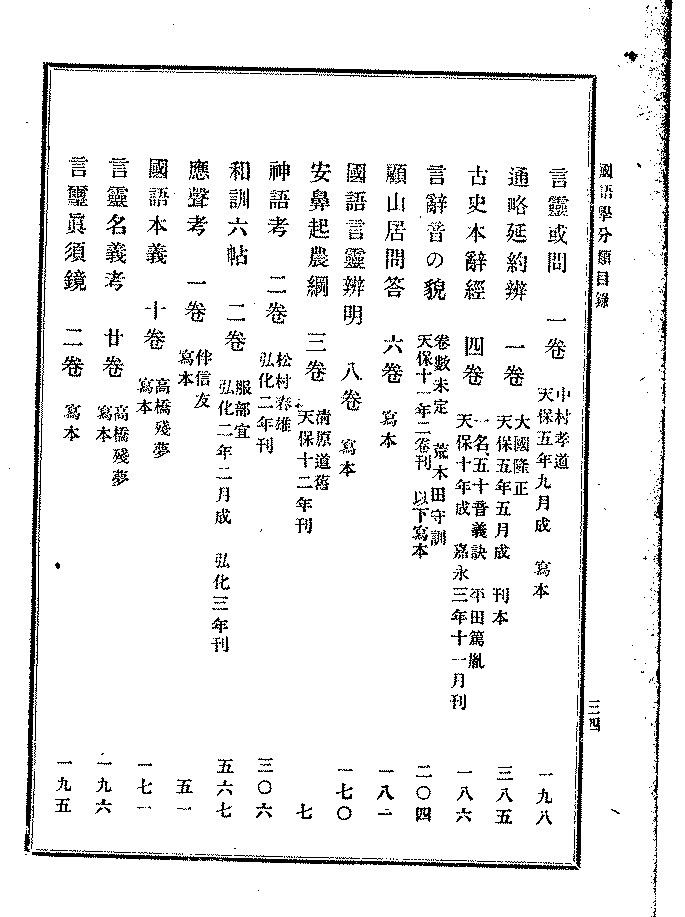 國語學分類目錄
三四
言靈或問 一卷 中村孝道 天保五年九月成 寫本 一九八
通略延約辨 一卷 大國隆正 天保五年五月成 刊本 三八五
古史本辭經 四卷 一名五十音義訣 平田篤胤 天保十年成 嘉永三年十一月刊 一八六
言辭音の貌 卷數未定 荒木田守訓 天保十一年二卷刊 以下寫本 二〇四
顧山居問答 六卷 寫本 一八一
國語言靈辨明 八卷 寫本 一七〇
安鼻起農綱 三卷 淸原道舊 天保十二年刊 七
神語考 二卷 松村春雄 弘化二年刊 三〇六
和訓六帖 二卷 服部宜 弘化二年二月成 弘化三年刊 五六七
應聲考 一卷 伴信友 寫本 五一
國語本義 十卷 高橋殘夢 寫本 一七一
言靈名義考 廿卷 高橋殘夢 寫本 一九六
言靈眞須鏡 二卷 寫本 一九五